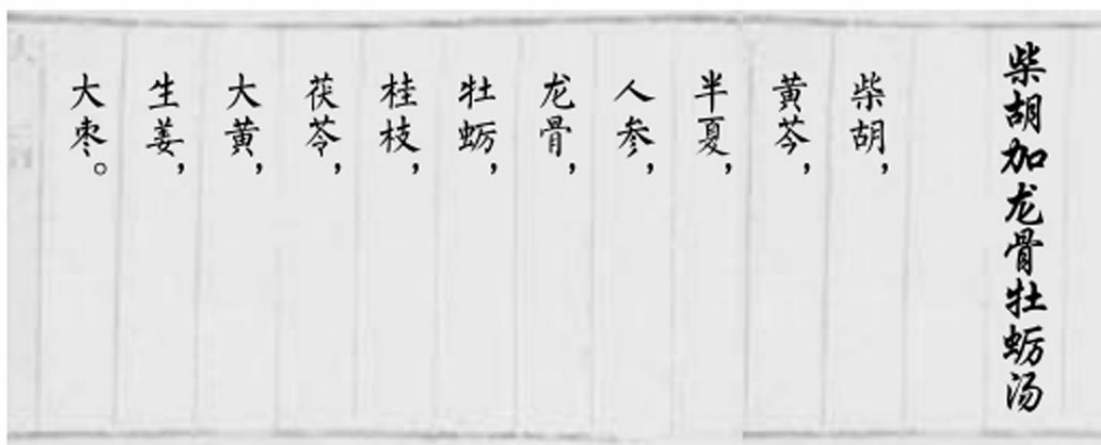 柴胡加龙骨牡蛎汤
柴胡，
黄芩，
半夏，
人参，
龙骨，
牡蛎，
桂枝，
茯苓，
大黄，
生姜，
大枣。